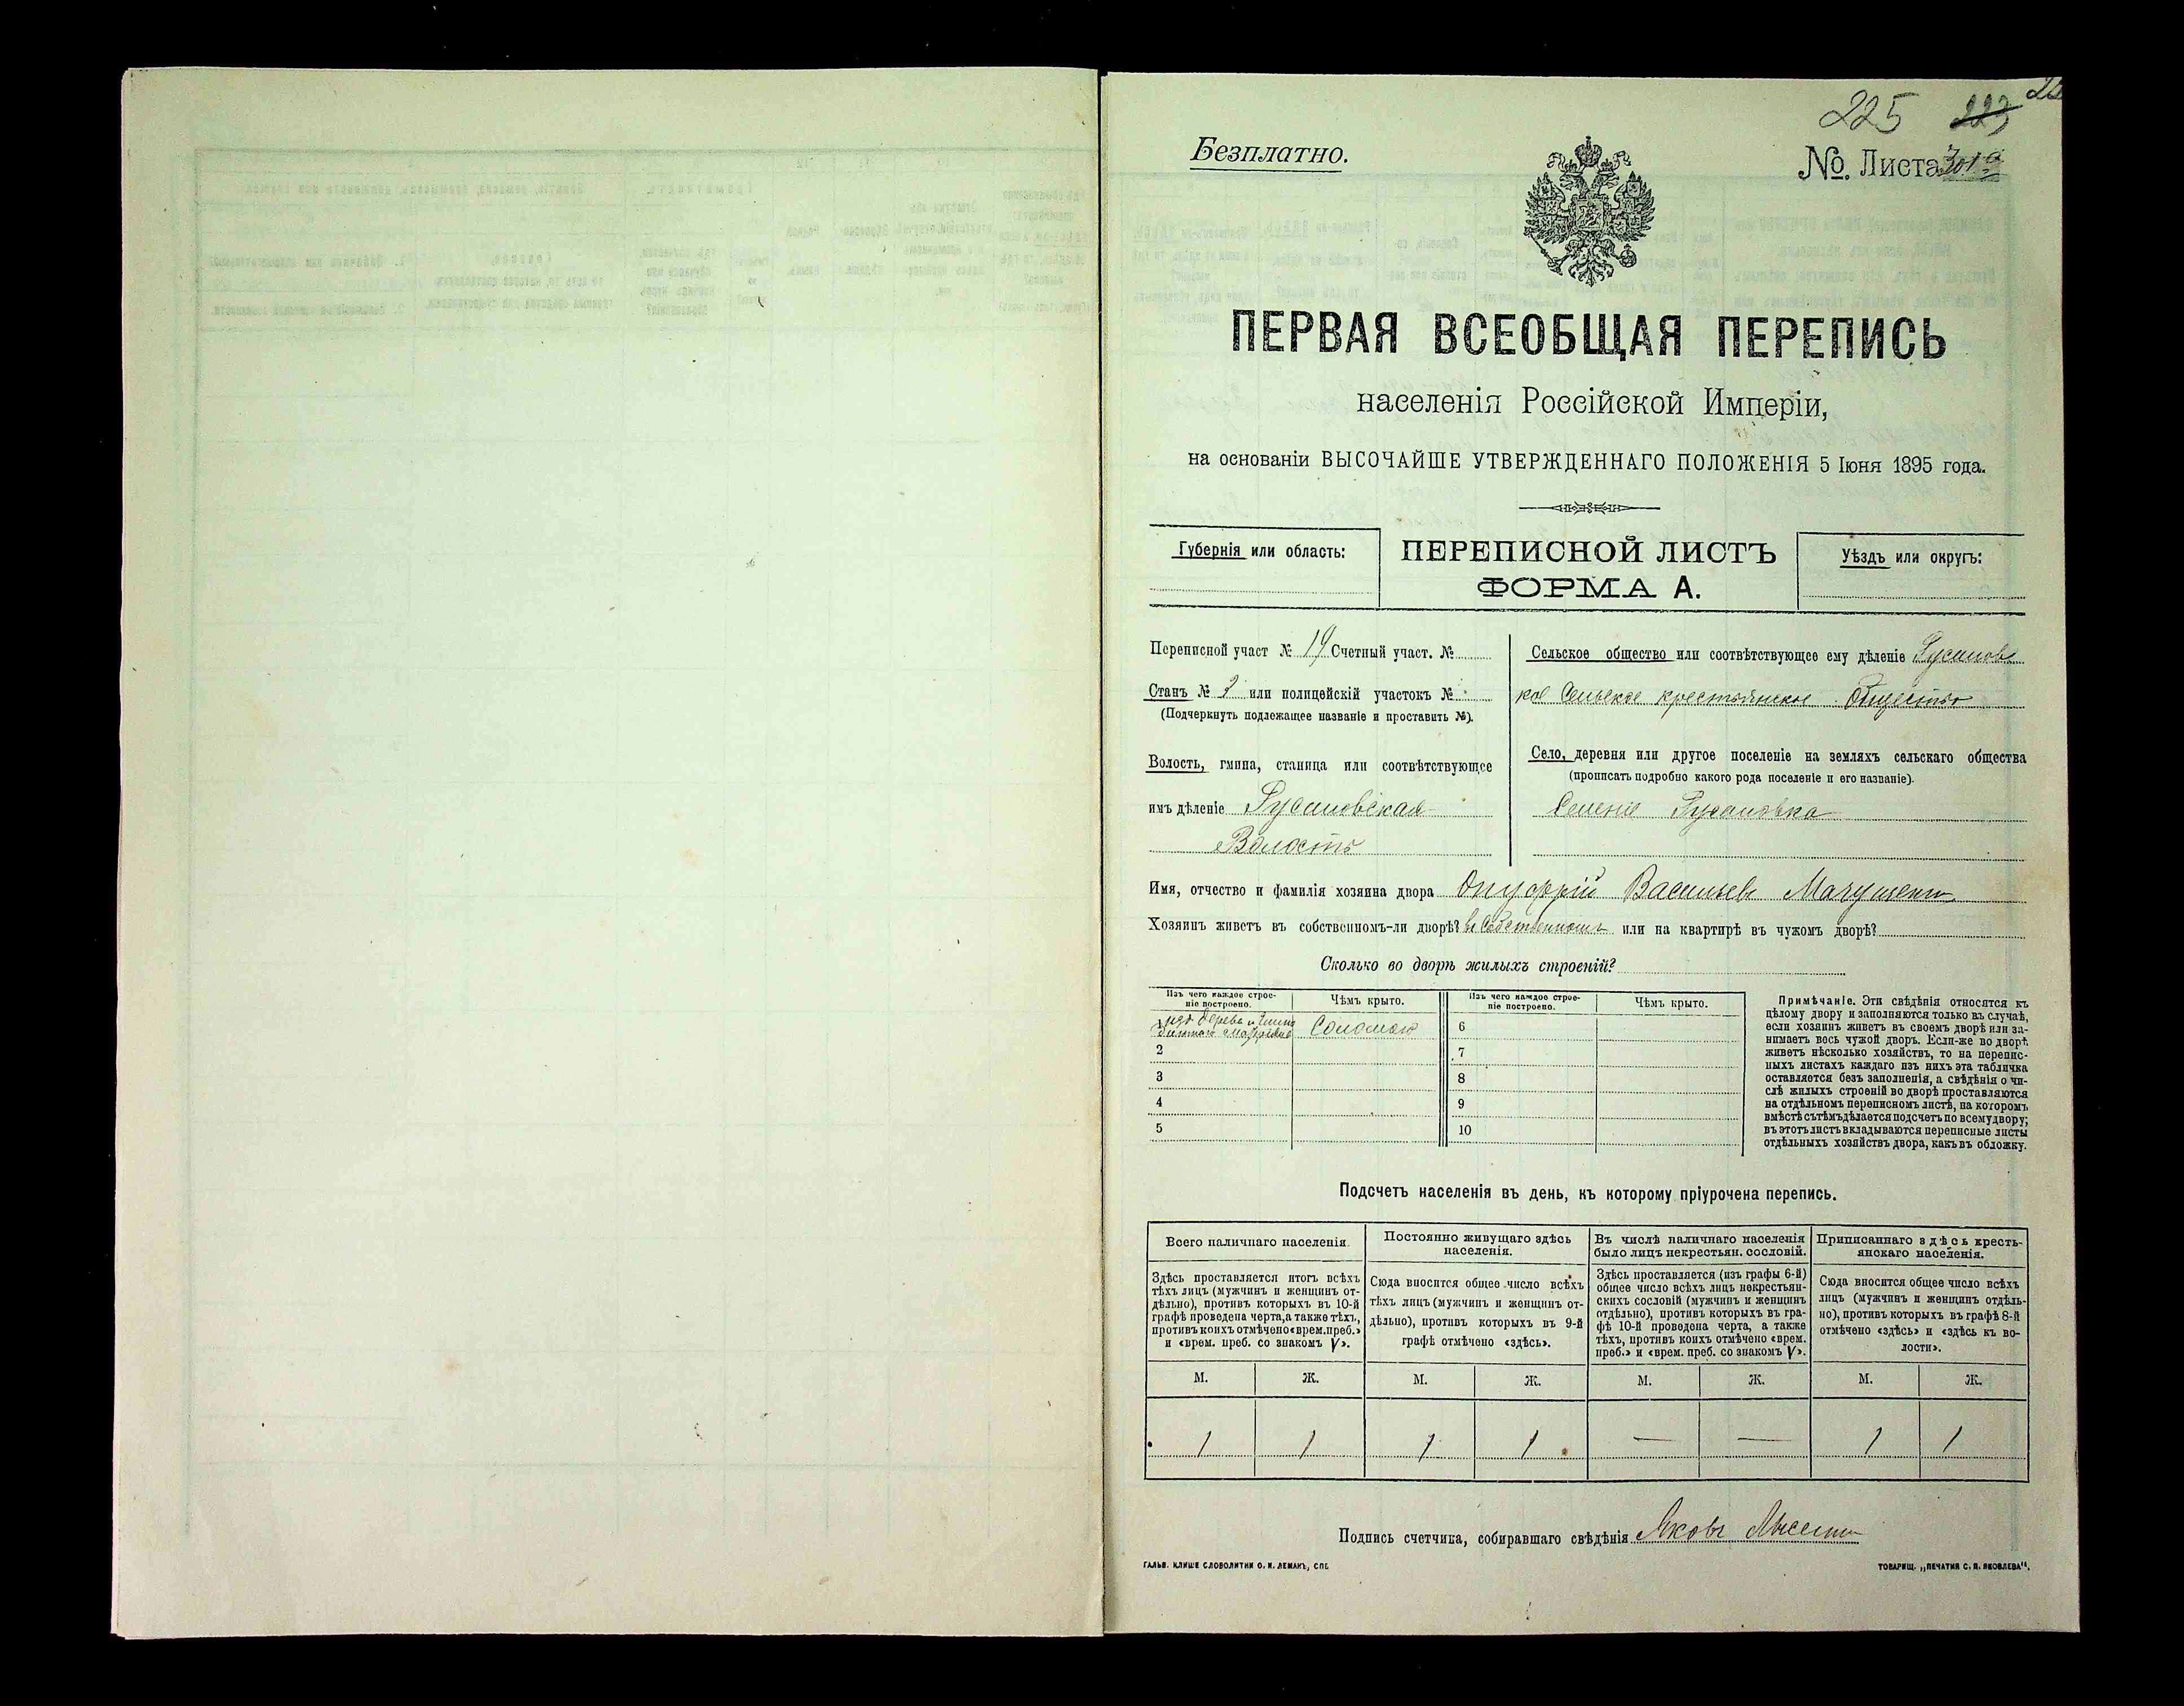 225 223
Безплатно.
№ Листа 301а
ПЕРВАЯ ВСЕОБЩАЯ ПЕРЕПИСЬ
населенія Россійской Имперіи,
на основаніи ВЫСОЧАЙШЕ УТВЕРЖДЕННАГО ПОЛОЖЕНІЯ 5 Іюня 1895 года.
Губернія или область:
ПЕРЕПИСНОЙ ЛИСТЪ
ФОРМА А.
Уѣздъ или округъ:
Переписной участ № 19 Счетный участ. №
Станъ № 2 или полицейскій участокъ №
(Подчеркнуть подлежащее названіе и проставить №).
Волость, гмина, станица или соотвѣтствующее
имъ дѣленіе Русановская
Волость
Сельское общество или соотвѣтствующее ему дѣленіе Русановс
кое Сельское крестьянское Общество
Село, деревня или другое поселеніе на земляхъ сельскаго общества
(прописать подробно какого рода поселеніе и его названіе).
Селеніе Русановка
Имя, отчество и фамилія хозяина двора Онуфрій Васильевъ
Хозяинъ живетъ въ собственномъ-ли дворѣ? въ Собственномъ или на квартирѣ въ чужомъ дворѣ?
Сколько во дворѣ жилыхъ строеній?
Изъ чего каждое строе-
ніе построено.
Чѣмъ крыто.
Изъ чего каждое строе-
ніе построено.
Чѣмъ крыто.
1 изъ дерева и глины
Соломою
6
2
7
3
8
4
9
5
10
Примѣчаніе. Эти свѣдѣнія относятся къ
цѣлому двору и заполняются только въ случаѣ,
если хозяинъ живетъ въ своемъ дворѣ или за-
нимаетъ весь чужой дворъ. Если-же во дворѣ
живетъ нѣсколько хозяйствъ, то на перепис-
ныхъ листахъ каждаго изъ нихъ эта табличка
оставляется безъ заполненія, а свѣдѣнія о чи-
слѣ жилыхъ строеній во дворѣ проставляются
на отдѣльномъ переписномъ листѣ, на которомъ
вмѣстѣ съ тѣмъ дѣлается подсчетъ по всему двору;
въ этотъ листъ вкладываются переписные листы
отдѣльныхъ хозяйствъ двора, какъ въ обложку.
Подсчетъ населенія въ день, къ которому пріурочена перепись.
Всего наличнаго населенія.
Здѣсь проставляется итогъ всѣхъ
тѣхъ лицъ (мужчинъ и женщинъ от-
дѣльно), противъ которыхъ въ 10-й
графѣ проведена черта, а также тѣхъ,
противъ коихъ отмѣчено «врем. преб.»
и «врем. преб. со знакомъ V».
Постоянно живущаго здѣсь
населенія.
Сюда вносится общее число всѣхъ
тѣхъ лицъ (мужчинъ и женщинъ от-
дѣльно), противъ которыхъ въ 9-й
графѣ отмѣчено «здѣсь».
Въ числѣ наличнаго населенія
было лицъ некрестьян. сословій.
Здѣсь проставляется (изъ графы 6-й)
общее число всѣхъ лицъ некрестьян-
скихъ сословій (мужчинъ и женщинъ
отдѣльно), противъ которыхъ въ гра-
фѣ 10-й проведена черта, а также
тѣхъ, противъ коихъ отмѣчено «врем.
преб.» и «врем. преб. со знакомъ V».
Приписаннаго здѣсь кресть-
янскаго населенія.
Сюда вносится общее число всѣхъ
лицъ (мужчинъ и женщинъ отдѣль-
но), противъ которыхъ въ графѣ 8-й
отмѣчено «здѣсь» и «здѣсь къ во-
лости».
М. Ж. М. Ж. М. Ж. М. Ж.
1 1 1 1 — — 1 1
Подпись счетчика, собиравшаго свѣдѣнія Яковъ
ГАЛЬВ. КЛИШЕ СЛОВОЛИТНИ О. И. ЛЕМАНЪ, СПБ.
ТОВАРИЩ. „ПЕЧАТНЯ С. П. ЯКОВЛЕВА".